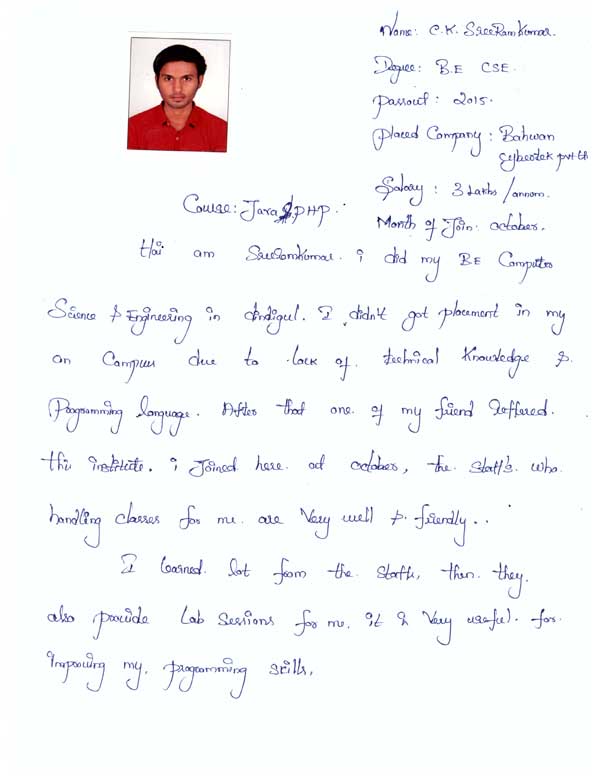 Name: C.K. SreeRamKumar.
Degree: B.E CSE.
Passout: 2015.
Placed Company: Bahwan
Cybertek pvt ltd
Salary: 3 Lakhs / annom.
Month of Join: october.
Course: Java & PHP.
Hai am SreeRamKumar. i did my BE Computer
Science & Engineering in dindigul. I didn't got placement in my
on Campus due to lack of technical Knowledge &
Programming language. After that one of my friend Reffered.
this institute. i joined here. at october, the Staff's who
handling classes for me are Very well & friendly..
I learned lot from the Staffs, then they
also provide Lab Sessions for me. it is Very useful for
Improving my programming skills.